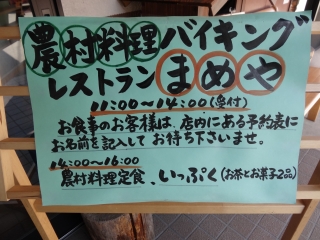 農村料理バイキング
レストランまめや
11:00〜14:00(受付)
お食事のお客様は、店内にある予約表に
お名前を記入してお待ち下さいませ。
14:00〜16:00
農村料理定食、いっぷく(お茶とお菓子2品)